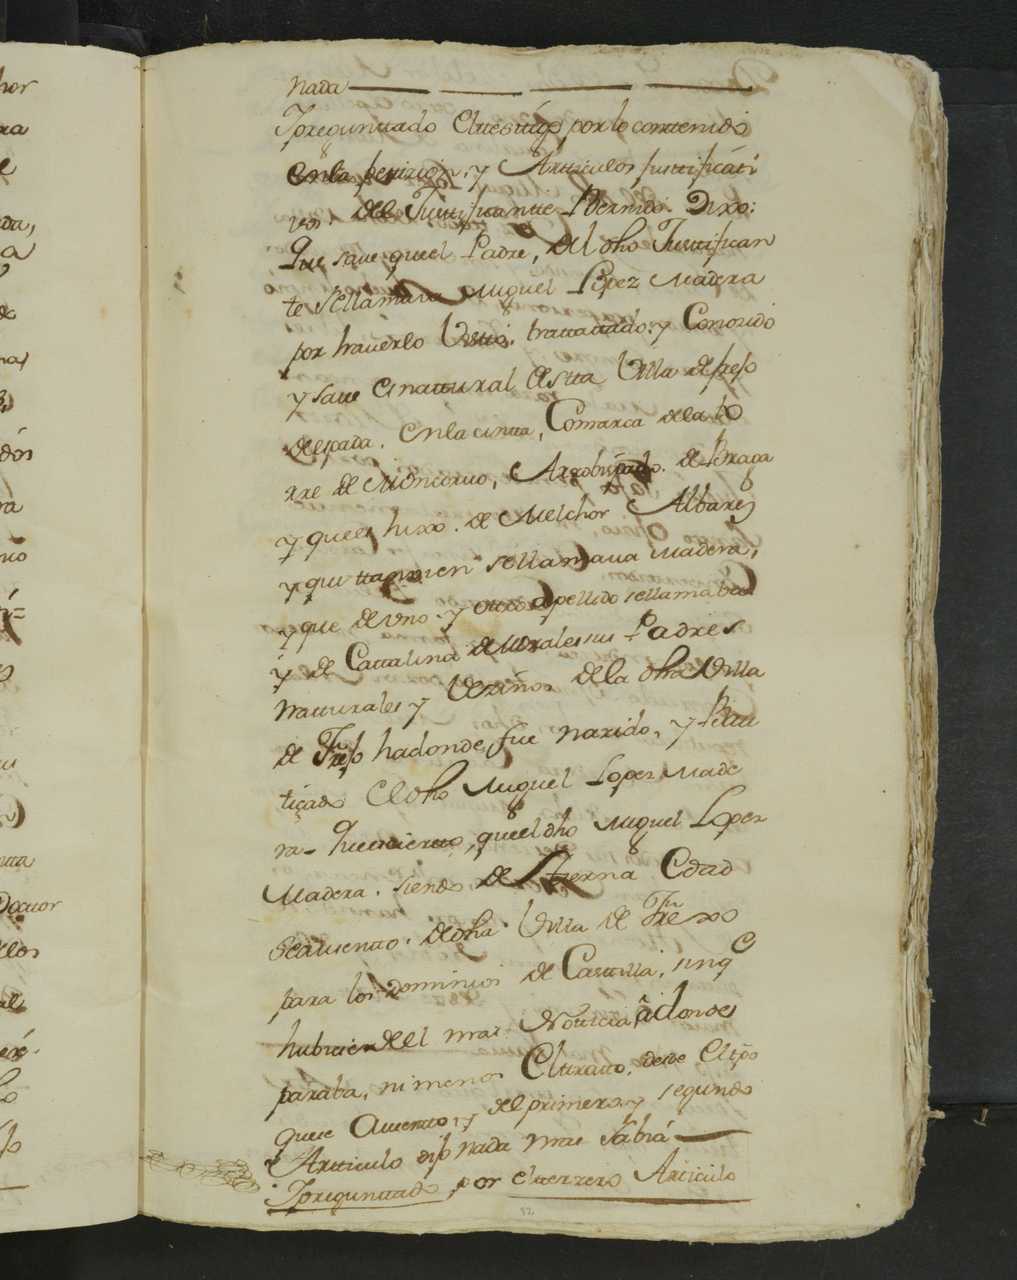 nada
Ypreguntado El testigo por lo contenido
en la petizion, y Artticulos justtificati
vos. del Justtificantte Dixo:
Que saue que el Padre, del dho Justtifican
te sellamava Miguel Lopez Madera
por hauerlo Visto, trattattado, y Conozido
y saue es nattural de estta Villa de frejo
de espada. En la cintta, Comarca de la to
rre de Moncorvo, Arzobispado. de Braga
y que es hixo. de Melchor Albarez
y que ttamvien sellamaua Madera,
y que de uno. y otro apellido sellamaba
y de Cattalina de Morales sus Padres
Natturales y Vezinos de la dha Villa
de Frejo ha donde fue nazido, y Bau
tiçado El dho Miguel Lopez Made
ra que el dho Miguel Lopez
Madera. siendo de tierna Edad
se ausentto. de dha Villa de Frexo
para los dominios de Casttilla, sin q
hubiesen del mas Notticia, adonde
paraba, ni menos El tratto, desde El tpo
que se Ausentto, y del primero, y segundo
Artticulo dijo nada mas sabia
Ypreguntado por el terzero Articulo